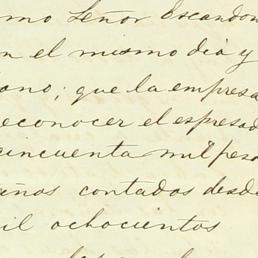 mo Señor Escandon
en el mismo dia y
ano; que la empresa
reconocer el espresad
cincuenta mil peso
años contados desde
mil ochocientos